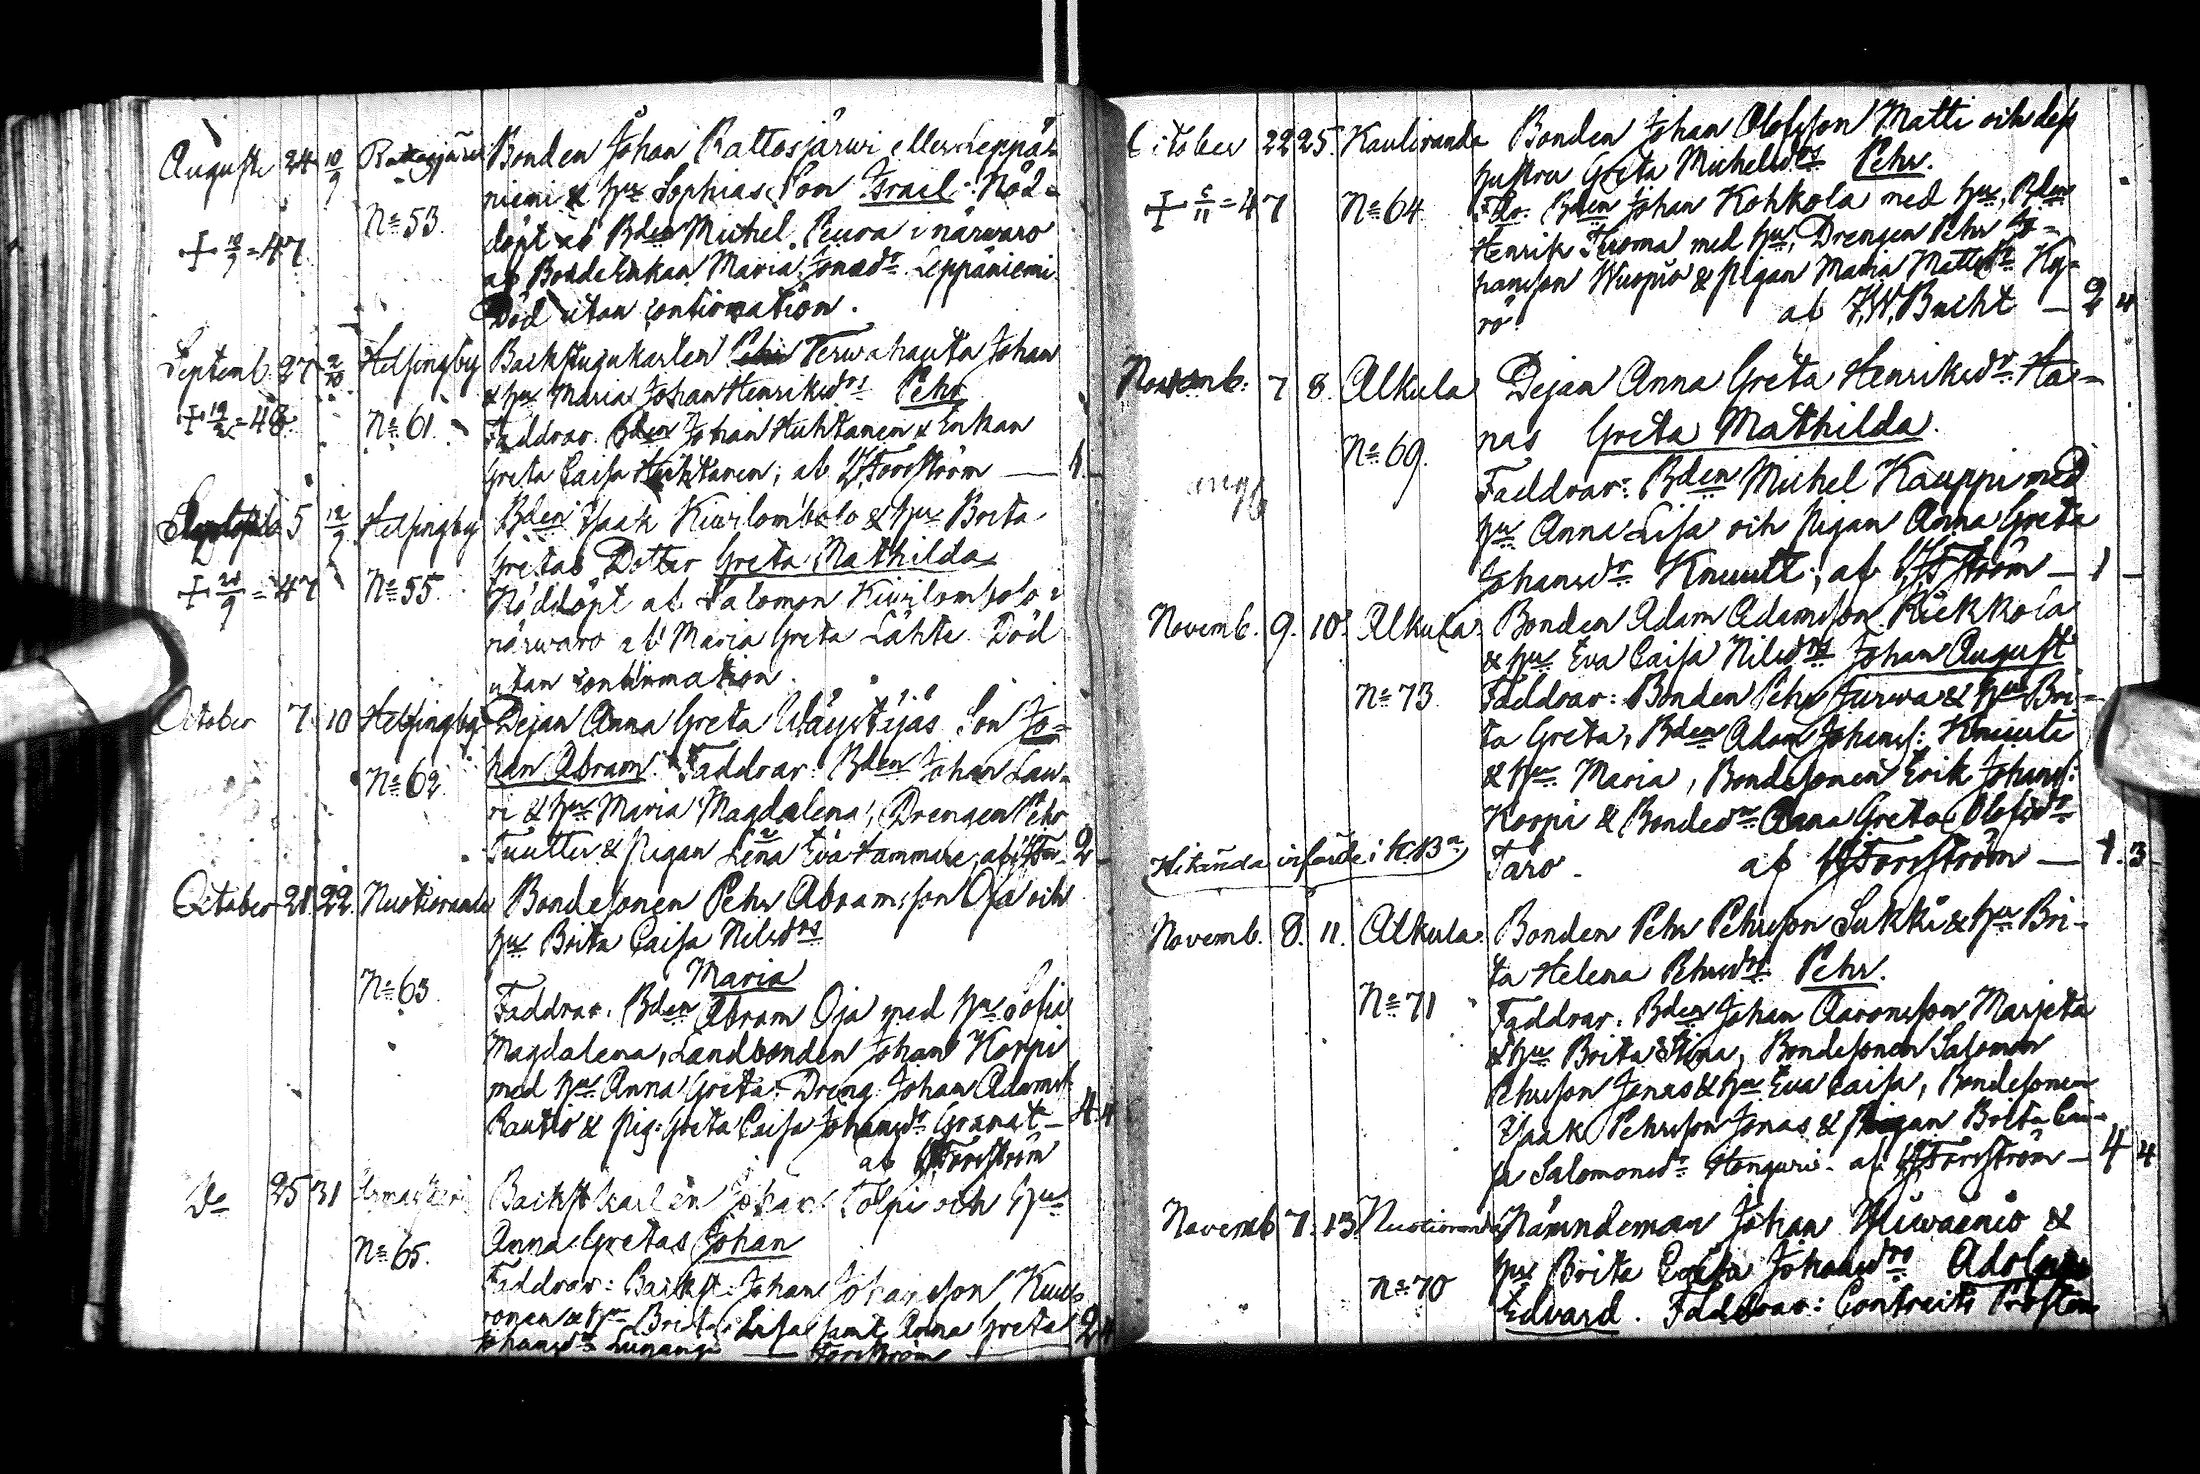 Augusti 24 10/9 Rattosjärvi Bonden Johan Rattosjärvi eller Leppä-
niemi & hu Sophias Son Israel. Nöd-
No 53. döpt af Bden Michel Peura i närwaro
+ 10/9 = 47 af BondeEnkan Maria Jonædr Leppäniemi.
Död utan confirmation.
Septemb. 27 2/10 Helsingby Backstugukarlen Terwahauta Johan
& hu Maria Johan Henriksdrs Pehr
+ 19/2 = 48 No 61. Faddrar. Bden Johan Huhtanen & Enkan
Greta Caisa Huhtanen; af Forsström — 1.
5 12/9 Helsingby Bden Isaak Kiwilombolo & hu Brita
Gretas Dotter Greta Mathilda
+ 20/9 = 47 No 55. Nöddöpt af Salomon Kiwilombolo i
närwaro af Maria Greta Lahti. Död
utan confirmation.
October 7 10 Helsingby Dejan Anna Greta Son Jo-
han Abram. Faddrar: Bden Johan Lau-
No 62. ri & hu Maria Magdalena, Drengen Pehr
& Pigan Lena Eva Lammare, af 2
October 21 22. Nuotioranda Bondesonen Pehr Abramsson Oja och
hu Brita Caisa Nilsdrs
Maria
No 63. Faddrar. Bden Abram Oja med hu Sofia
Magdalena, Landbonden Johan Korpi
med hu Anna Greta. Dreng Johan Adamss
Rautio & Pig. Greta Caisa Johansdr Granat — 4 4
af Forsström
Do 25 31 Backstkarlen Johan Tolpi och hu
Anna Gretas Johan
No 65. Faddrar: Backst. Johan Johansson Kuu-
ronen & hu Brita Lisa samt Anna Greta 2 4
Johansdr Forsström
October 22 25. Kauliranda Bonden Johan Olofsson Matti och dess
hustru Greta Michelsdrs Pehr.
+ 5/11 = 47 No 64 Fdr. Bden Johan Kohkola med hu, Bden
Henrik med hu, Drengen Pehr Jo-
hansson Wuopio & Pigan Maria Mattsdr
ro. af J.W. Bucht — 2 4
Novemb. 7 8. Alkula Dejan Anna Greta Henriksdr Ha-
nas Greta Mathilda.
No 69. Faddrar: Bden Michel Kauppi med
hu Anna Lisa och Pigan Anna Greta
Johansdr Knuuti, af Fström — 1 —
Novemb. 9. 10. Alkula Bonden Adam Adamsson Riekkola
& hu Eva Caisa Nilsdrs Johan August
No 73 Faddrar: Bonden Pehr Jurwa & hu Bri-
ta Greta, Bden Adam Johanss: Knuuti
& hu Maria, Bondesonen Erik Johanss:
Korpi & Bondedr Anna Greta Olofsdr
Taro. af Forsström — 1. 3
Novemb. 8. 11. Alkula. Bonden Pehr Pehrsson Lukki & hu Bri-
ta Helena Pehrsdrs Pehr.
No 71 Faddrar: Bden Johan Aaronsson Marjeta
& hu Brita Stina, Bondesonen Salomon
Pehrsson Jonas & hu Eva Caisa, Bondesonen
Isaak Pehrsson Jonas & Pigan Brita Cai-
sa Salomonsdr af Forsström — 4 4
Novemb 7. 13 Nuotioranda Nämndeman Johan Niwaenio &
hu Brita Caisa Johansdrs Adolph
No 70 Edvard. Faddrar: Contracts Prosten